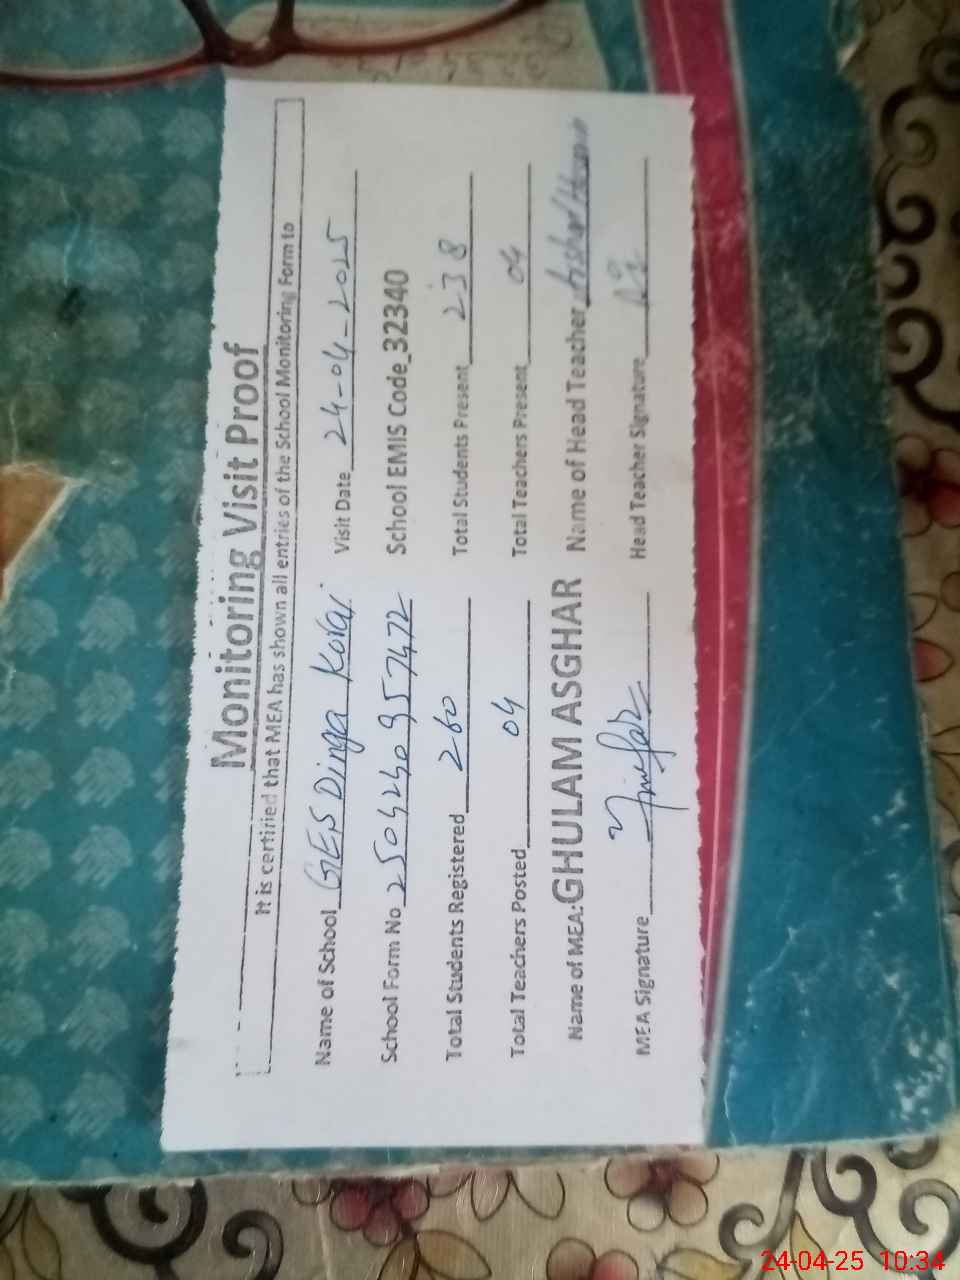 Monitoring Visit Proof
It is certified that MEA has shown all entries of the School Monitoring Form to
Name of School GES Dinga Korai. Visit Date 24-04-2025
School Form No 2504240957472 School EMIS Code 32340
Total Students Registered 260 Total Students Present 238
Total Teachers Posted 04 Total Teachers Present 04
Name of MEA: GHULAM ASGHAR Name of Head Teacher
MEA Signature Head Teacher Signature
24-04-25 10:34